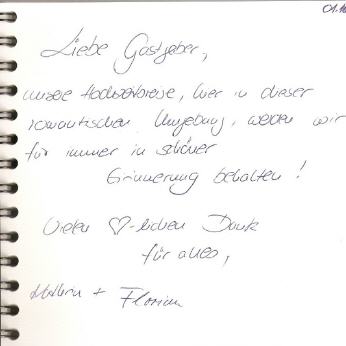 01.10
Liebe Gastgeber,
unsere Hochzeitsreise, hier in dieser
romantischen Umgebung, werden wir
für immer in schöner
Erinnerung behalten!
Vielen ♡-lichen Dank
für alles,
+ Florian